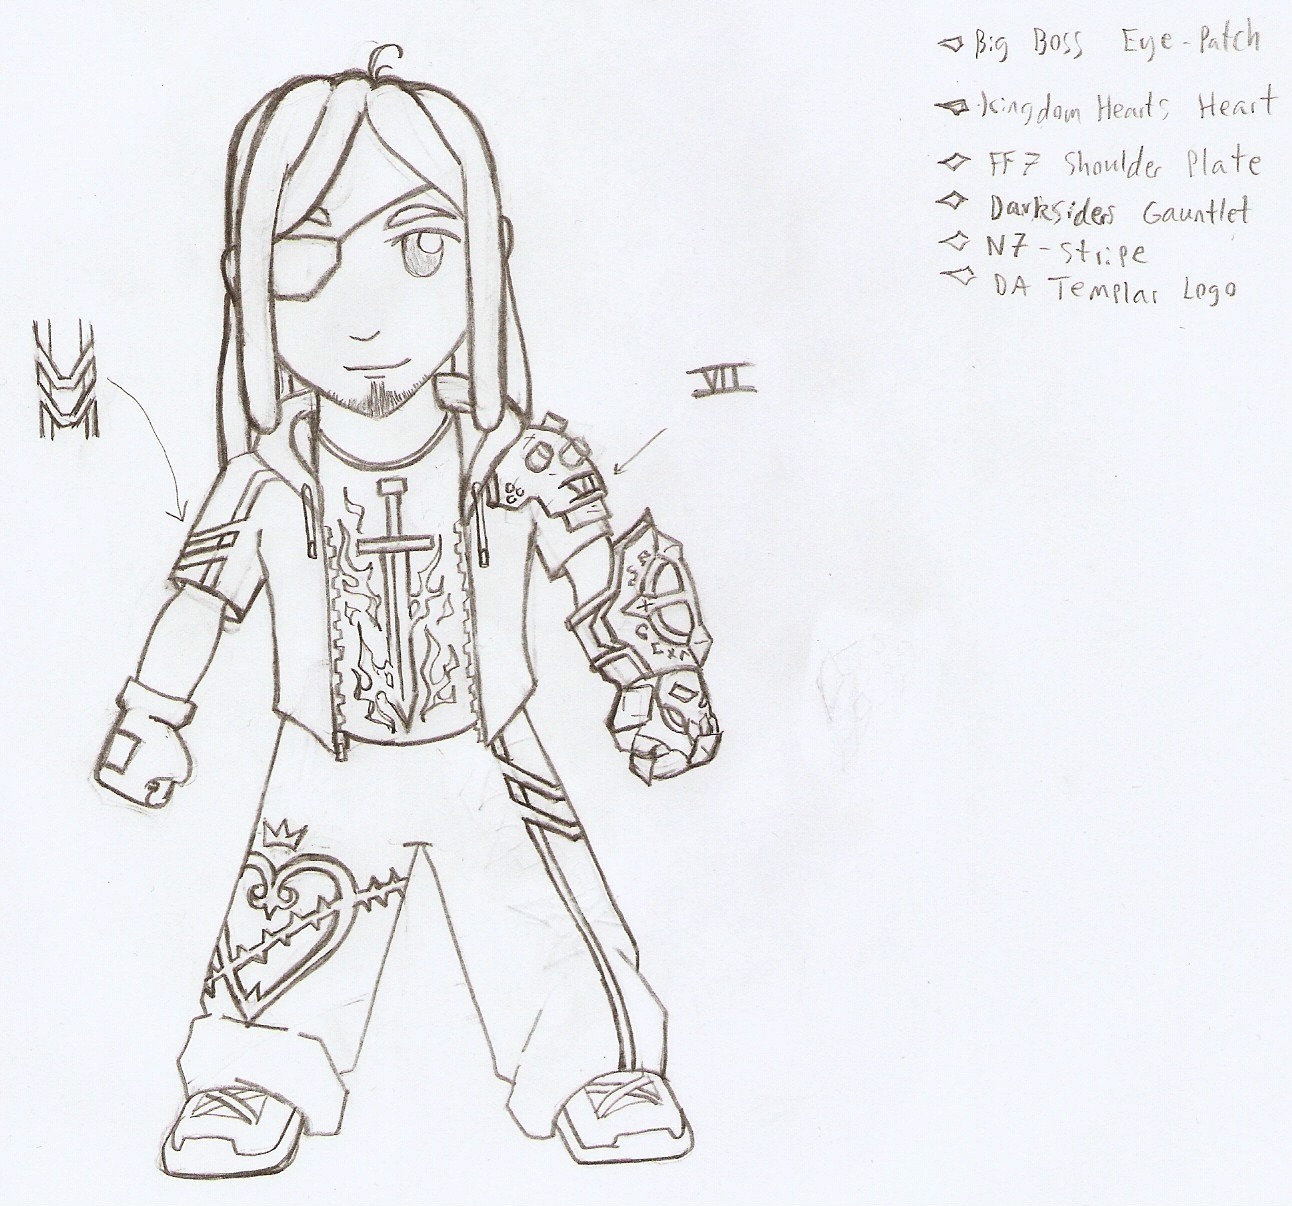 Big Boss Eye-Patch
Kingdom Hearts Heart
FF7 Shoulder Plate
Darksiders Gauntlet
N7-Stripe
DA Templar Logo
VII